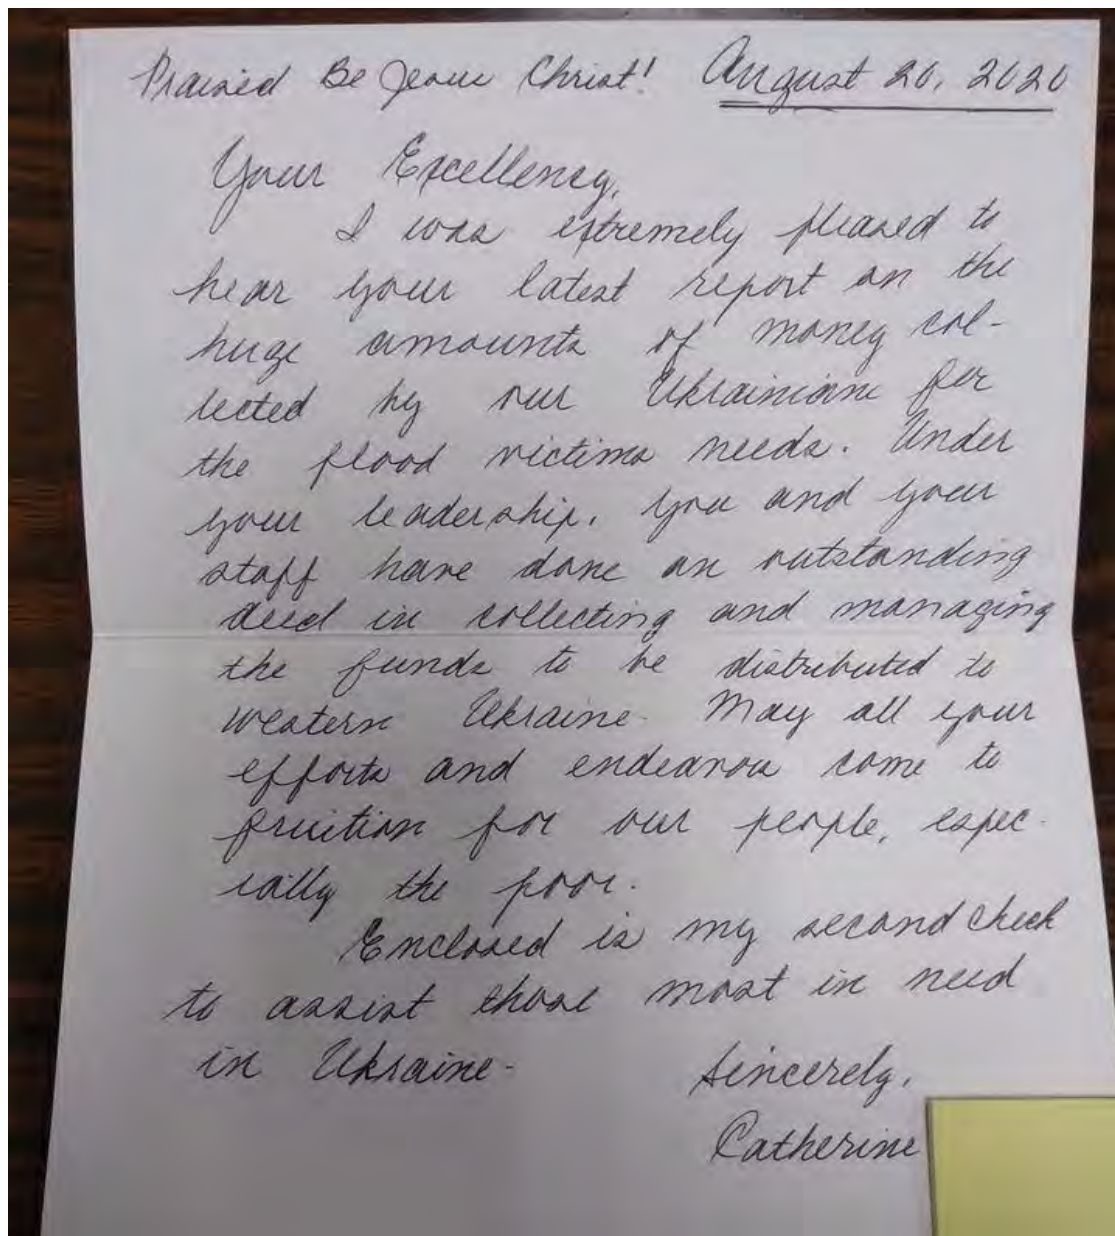 Praised Be Jesus Christ! August 20, 2020
Your Excellency,
I was extremely pleased to
hear your latest report on the
huge amounts of money col-
lected by our Ukrainians for
the flood victims needs. Under
your leadership, you and your
staff have done an outstanding
deed in collecting and managing
the funds to be distributed to
western Ukraine. May all your
efforts and endeavors come to
fruition for our people, espec-
ially the poor.
Enclosed is my second check
to assist those most in need
in Ukraine.
Sincerely,
Catherine